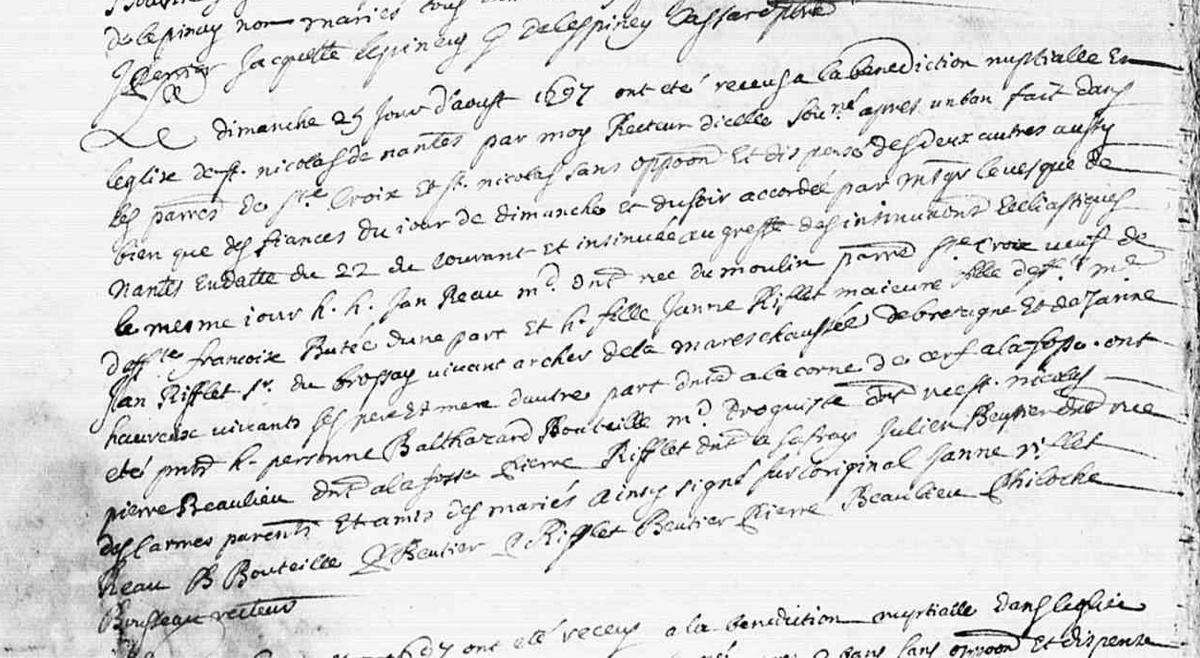 delepinay non mariés tous
Perrier Jacquette lepineuy G Delespiney Cassard ptre
Le dimanche 25 Jour d'aoust 1697 ont eté receus a la benediction nuptialle En
leglise de st. nicolas de nantes par moy Recteur dicelle sousné apres un ban fait dans
les parres de ste Croix Et st. nicolas sans oppoon Et dispense des deux autres aussy
bien que des fiances du jour de dimanche et du soir accordée par Msgr levesque de
Nantes En datte du 22 du courant Et insinuée au greffe des insinuaons Eccliastiques
le mesme jour h. h. Jan Reau md. dnt rue du moulin parre ste Croix veuf de
deffte francoise Butée dune part Et h. fille Janne Rifflet majeure fille de ff. h. me
Jan Rifflet sr. du brossay vivant archer de la mareschaussée de bretagne Et de Janne
vivants ses pere Et mere dautre part dnte a la corne de cerf a la fosse. ont
eté pnts h. personne Balthazard Bouteille md. droguiste dnt rue st. nicolas
pierre Beaulieu dnt a la fosse Pierre Rifflet dnt a Julien Beutier dnt rue
des Carmes parents Et amis des mariés ainsy signé sur loriginal Janne rifllet
Reau B Bouteille Beutier P Rifflet Beutier Pierre Beaulieu Philoche
Brusseau recteur
ont eté receus a la benediction nuptialle dans leglise
bans sans oppoon Et dispense